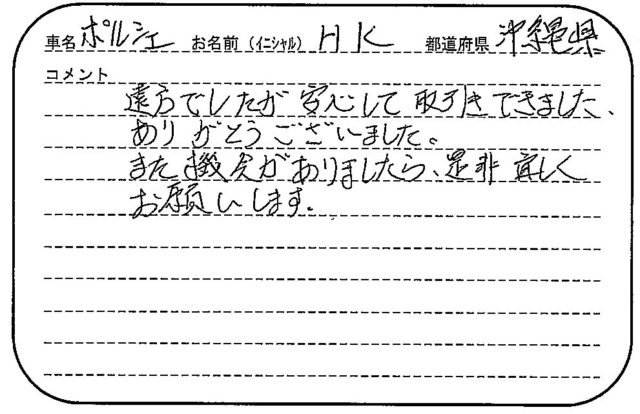 車名 ポルシェ お名前（イニシャル） H K 都道府県 沖縄県
コメント
遠方でしたが 安心して 取引きできました、
ありがとうございました。
また機会がありましたら、是非 宜しく
お願いします。